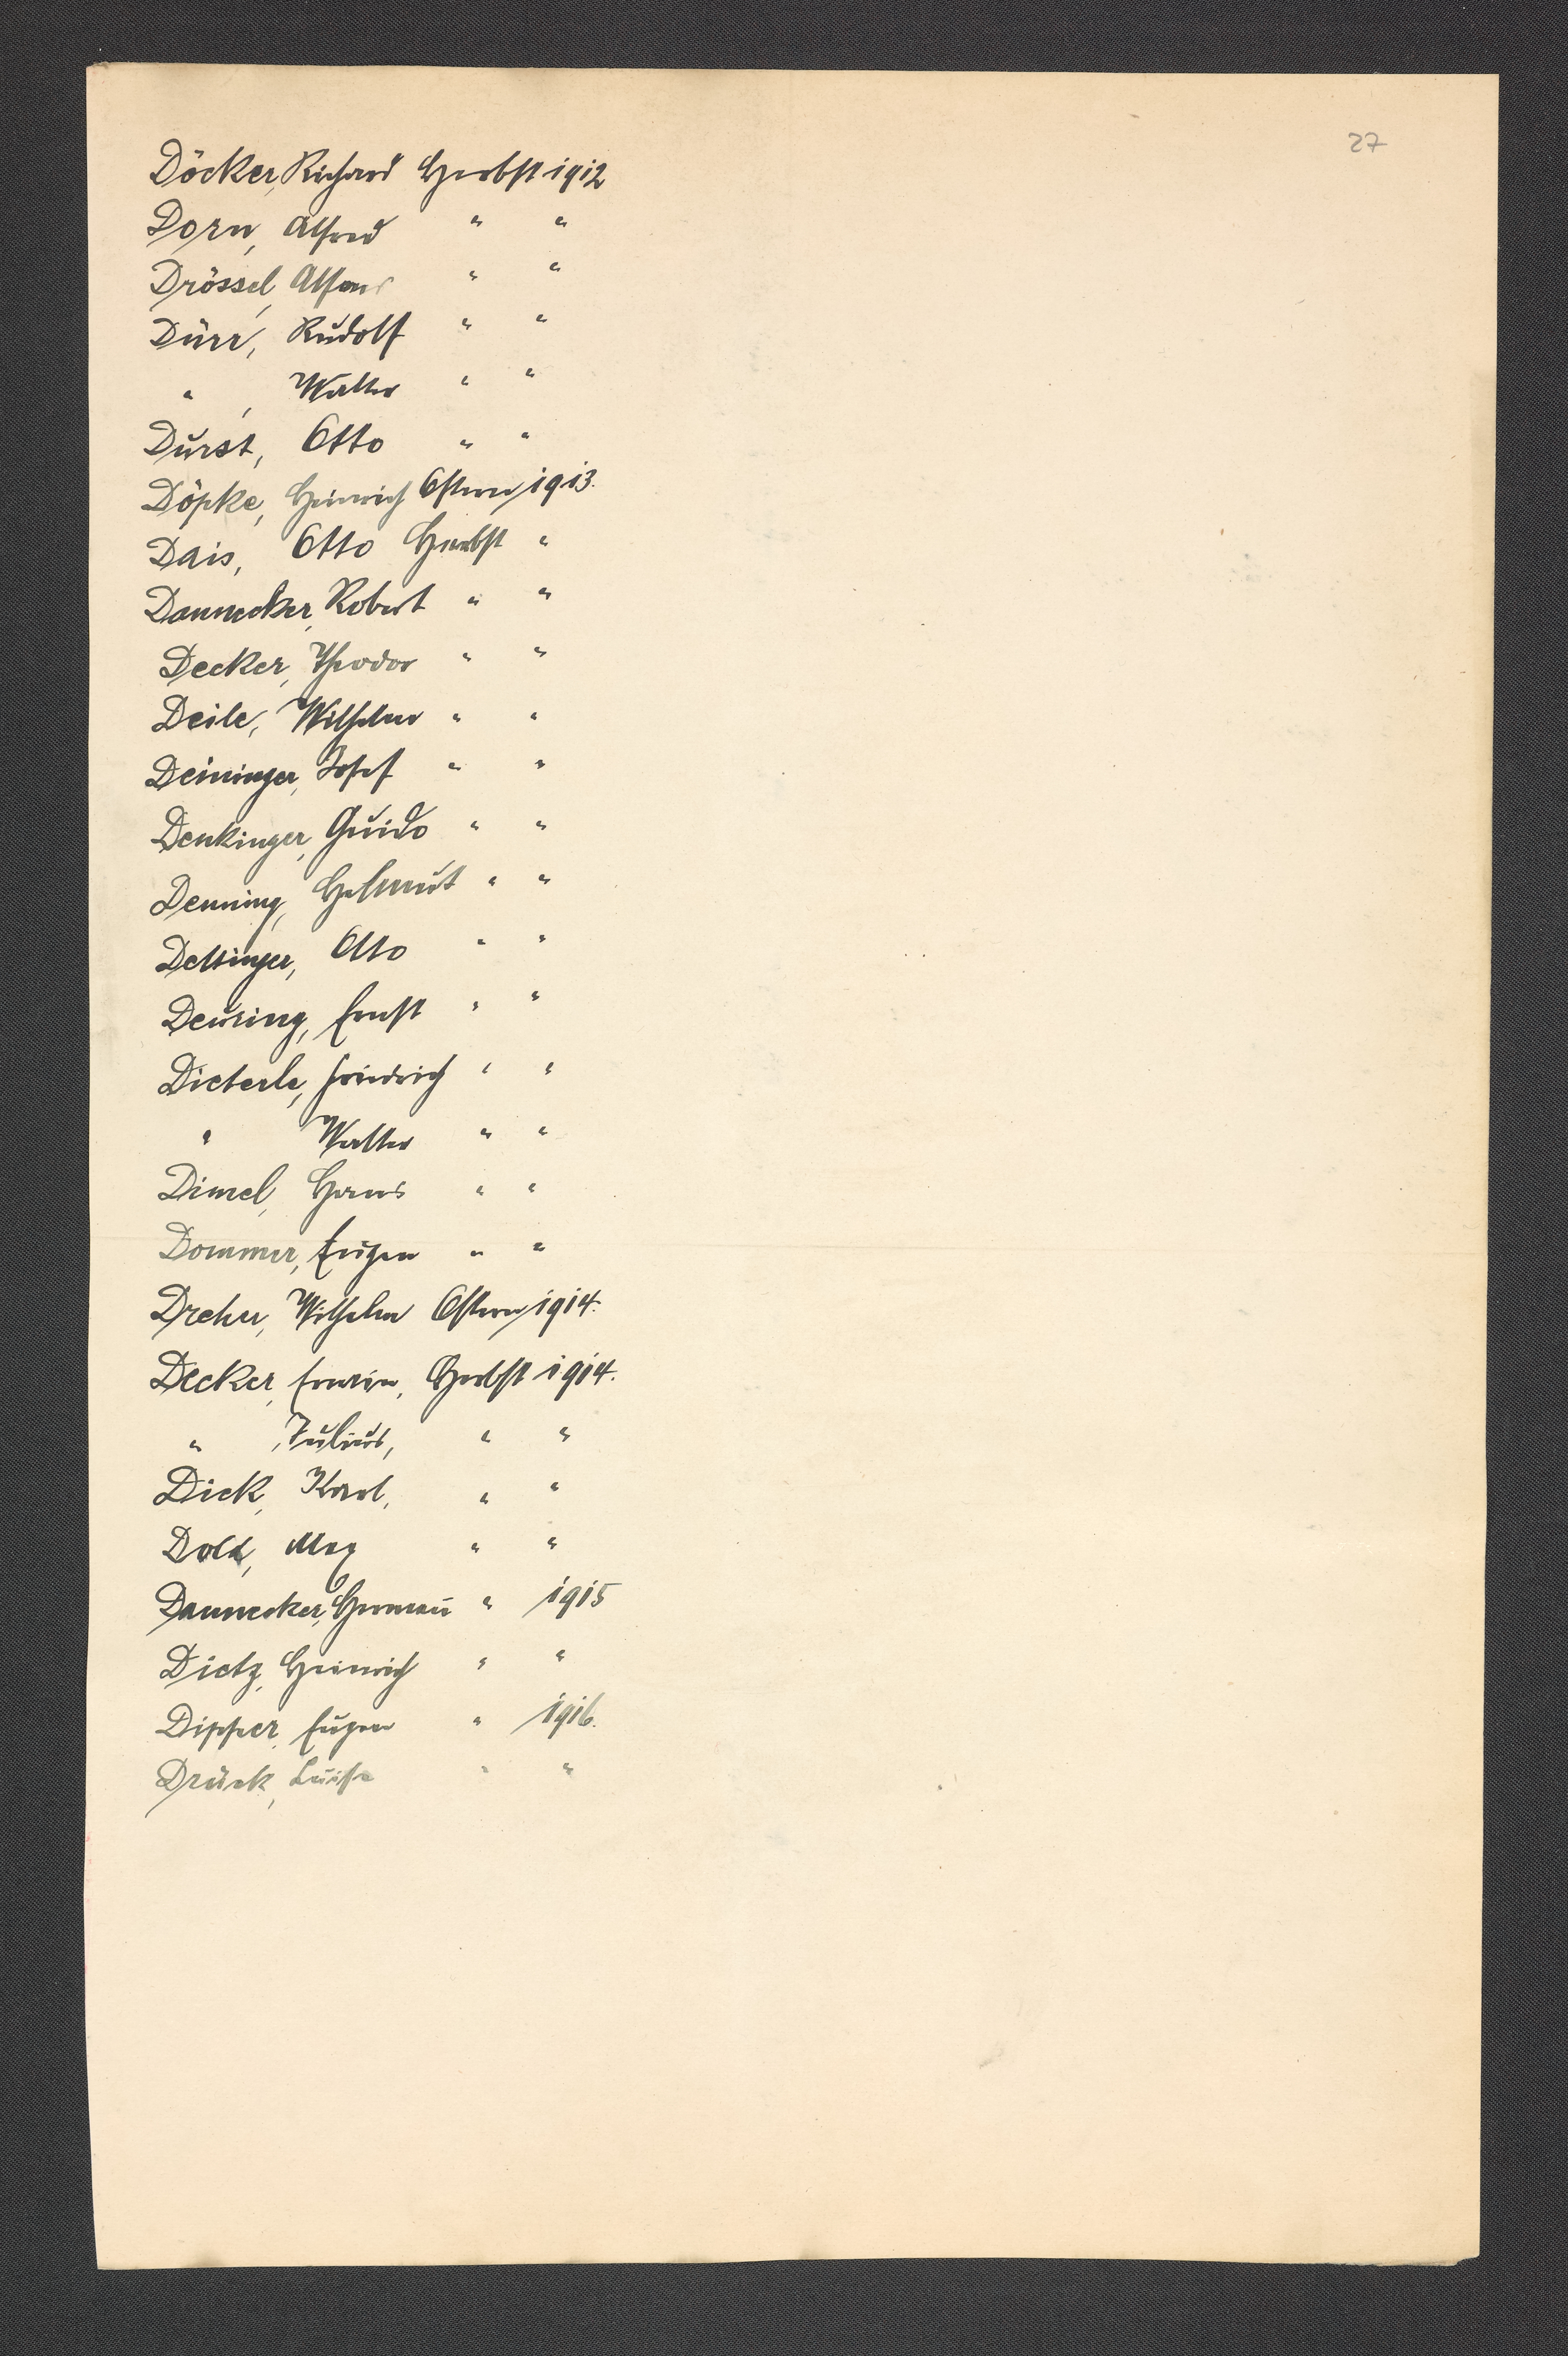 27
Döcker, Richard Herbst 1912
Dorn, Alfred " "
Drössel, Alfons " "
Dürr, Rudolf " "
" , Walter " "
Durst, Otto " "
Döpke, Heinrich Ostern 1913.
Dais, Otto Herbst "
Dannecker, Robert " "
Decker, Theodor " "
Deile, Wilhelm " "
Deininger, Josef " "
Denkinger, Guido " "
Denning, Helmut " "
Dettinger, Otto " "
Deuring, Ernst " "
Dieterle, Friedrich " "
" Walter " "
Dimel, Hans " "
Dommer, Eugen " "
Dreher, Wilhelm Ostern 1914.
Decker, Erwin, Herbst 1914.
" , Julius, " "
Dick, Karl, " "
Dold, Max " "
Dannecker, Hermann " 1915
Dietz, Heinrich " "
Dipper, Eugen " 1916.
Drück, Luise " "